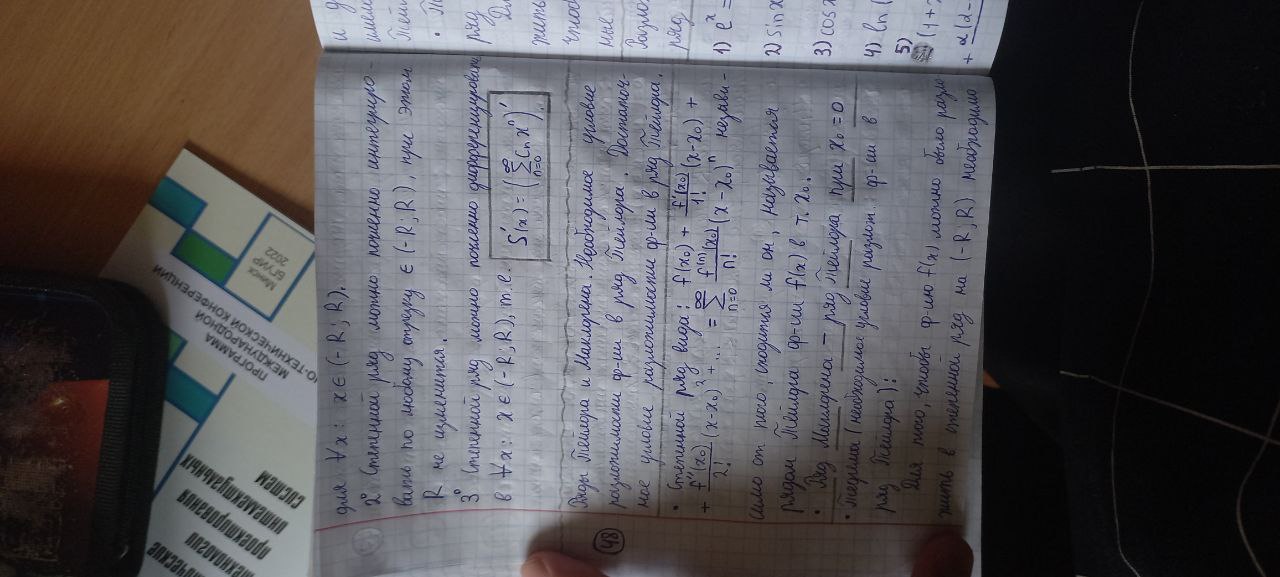 для ∀x: x ∈ (-R; R).
2° Степенной ряд можно почленно интегриро-
вать по любому отрезку ∈ (-R; R), при этом
R не изменится.
3° Степенной ряд можно почленно дифференцировать
в ∀x: x ∈ (-R; R), т.е. S'(x) = (∑ₙ₌₀^∞ Cₙ xⁿ)'.
48 Ряды Тейлора и Маклорена. Необходимое условие
разложимости ф-ии в ряд Тейлора. Достаточ-
ное условие разложимости ф-ии в ряд Тейлора.
• Степенной ряд вида: f(x₀) + f'(x₀)/1! (x-x₀) +
+ f''(x₀)/2! (x-x₀)² + ... = ∑ₙ₌₀^∞ f⁽ⁿ⁾(x₀)/n! (x-x₀)ⁿ незави-
симо от того, сходится ли он, называется
рядом Тейлора ф-ии f(x) в т. x₀.
• Ряд Маклорена – ряд Тейлора при x₀ = 0
• Теорема (необходимое условие разлож. ф-ии в
ряд Тейлора):
Для того, чтобы ф-ию f(x) можно было разло
жить в степенной ряд на (-R; R) необходимо
ряд
1) eˣ =
2) sin x
3) cos x
4) ln (
5) (1+x
+ α(α-
ПРОГРАММА
МЕЖДУНАРОДНОЙ
О-ТЕХНИЧЕСКОЙ КОНФЕРЕНЦИИ
Минск
БГУИР
2022
технологии
проектирования
интеллектуальных
систем